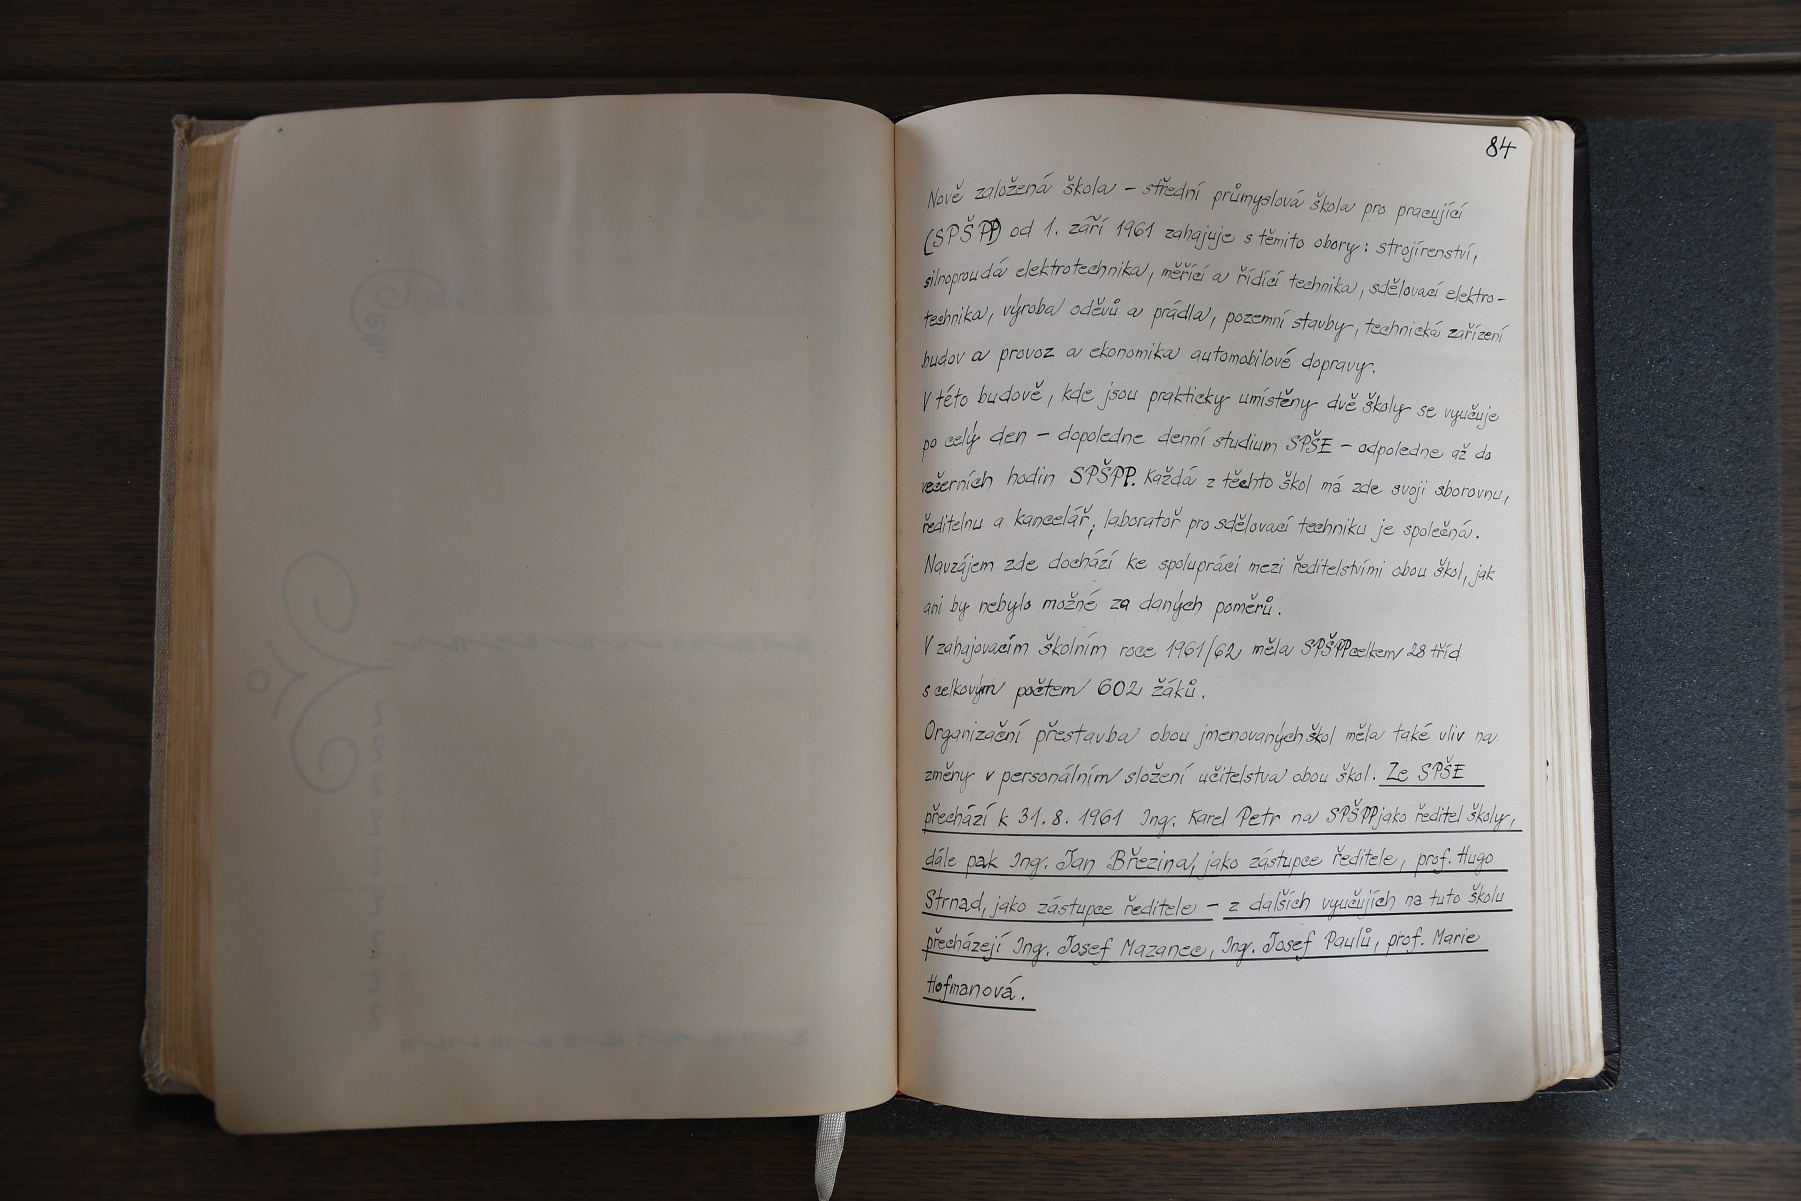 84
Nově založená škola – střední průmyslová škola pro pracující
(SPŠPP) od 1. září 1961 zahajuje s těmito obory: strojírenství,
silnoproudá elektrotechnika, měřící a řídící technika, sdělovací elektro-
technika, výroba oděvů a prádla, pozemní stavby, technická zařízení
budov a provoz a ekonomika automobilové dopravy.
V této budově, kde jsou prakticky umístěny dvě školy se vyučuje
po celý den – dopoledne denní studium SPŠE – odpoledne až do
večerních hodin SPŠPP. Každá z těchto škol má zde svoji sborovnu,
ředitelnu a kancelář; laboratoř pro sdělovací techniku je společná.
Navzájem zde dochází ke spolupráci mezi ředitelstvími obou škol, jak
ani by nebylo možné za daných poměrů.
V zahajovacím školním roce 1961/62 měla SPŠPP celkem 28 tříd
s celkovým počtem 602 žáků.
Organizační přestavba obou jmenovaných škol měla také vliv na
změny v personálním složení učitelstva obou škol. Ze SPŠE
přechází k 31. 8. 1961 Ing. Karel Petr na SPŠPP jako ředitel školy,
dále pak Ing. Jan Březina, jako zástupce ředitele, prof. Hugo
Strnad, jako zástupce ředitele – z dalších vyučujích na tuto školu
přecházejí Ing. Josef Mazanec, Ing. Josef Paulů, prof. Marie
Hofmanová.